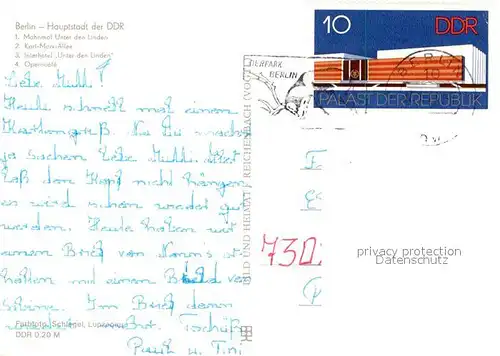 Berlin – Hauptstadt der DDR
1. Mahnmal Unter den Linden
2. Karl-Marx-Allee
3. Interhotel „Unter den Linden“
4. Opercafé
10 DDR
PALAST DER REPUBLIK
TIERPARK
BERLIN
Liebe Mutti!
Heute schnell mal einen
Kartengruß. Na Du machst
ja Sachen liebe Mutti. Aber
laß den Kopf nicht hängen
es wird schon wieder gut
werden. Heute haben wir
einen Brief von
erhalten und einen Brief von
Im Brief dann
wieder Tschüß
u.
730
BILD UND HEIMAT REICHENBACH (VOGTL)
privacy protection
Datenschutz
Farbfoto: Schlegel,
DDR 0,20 M